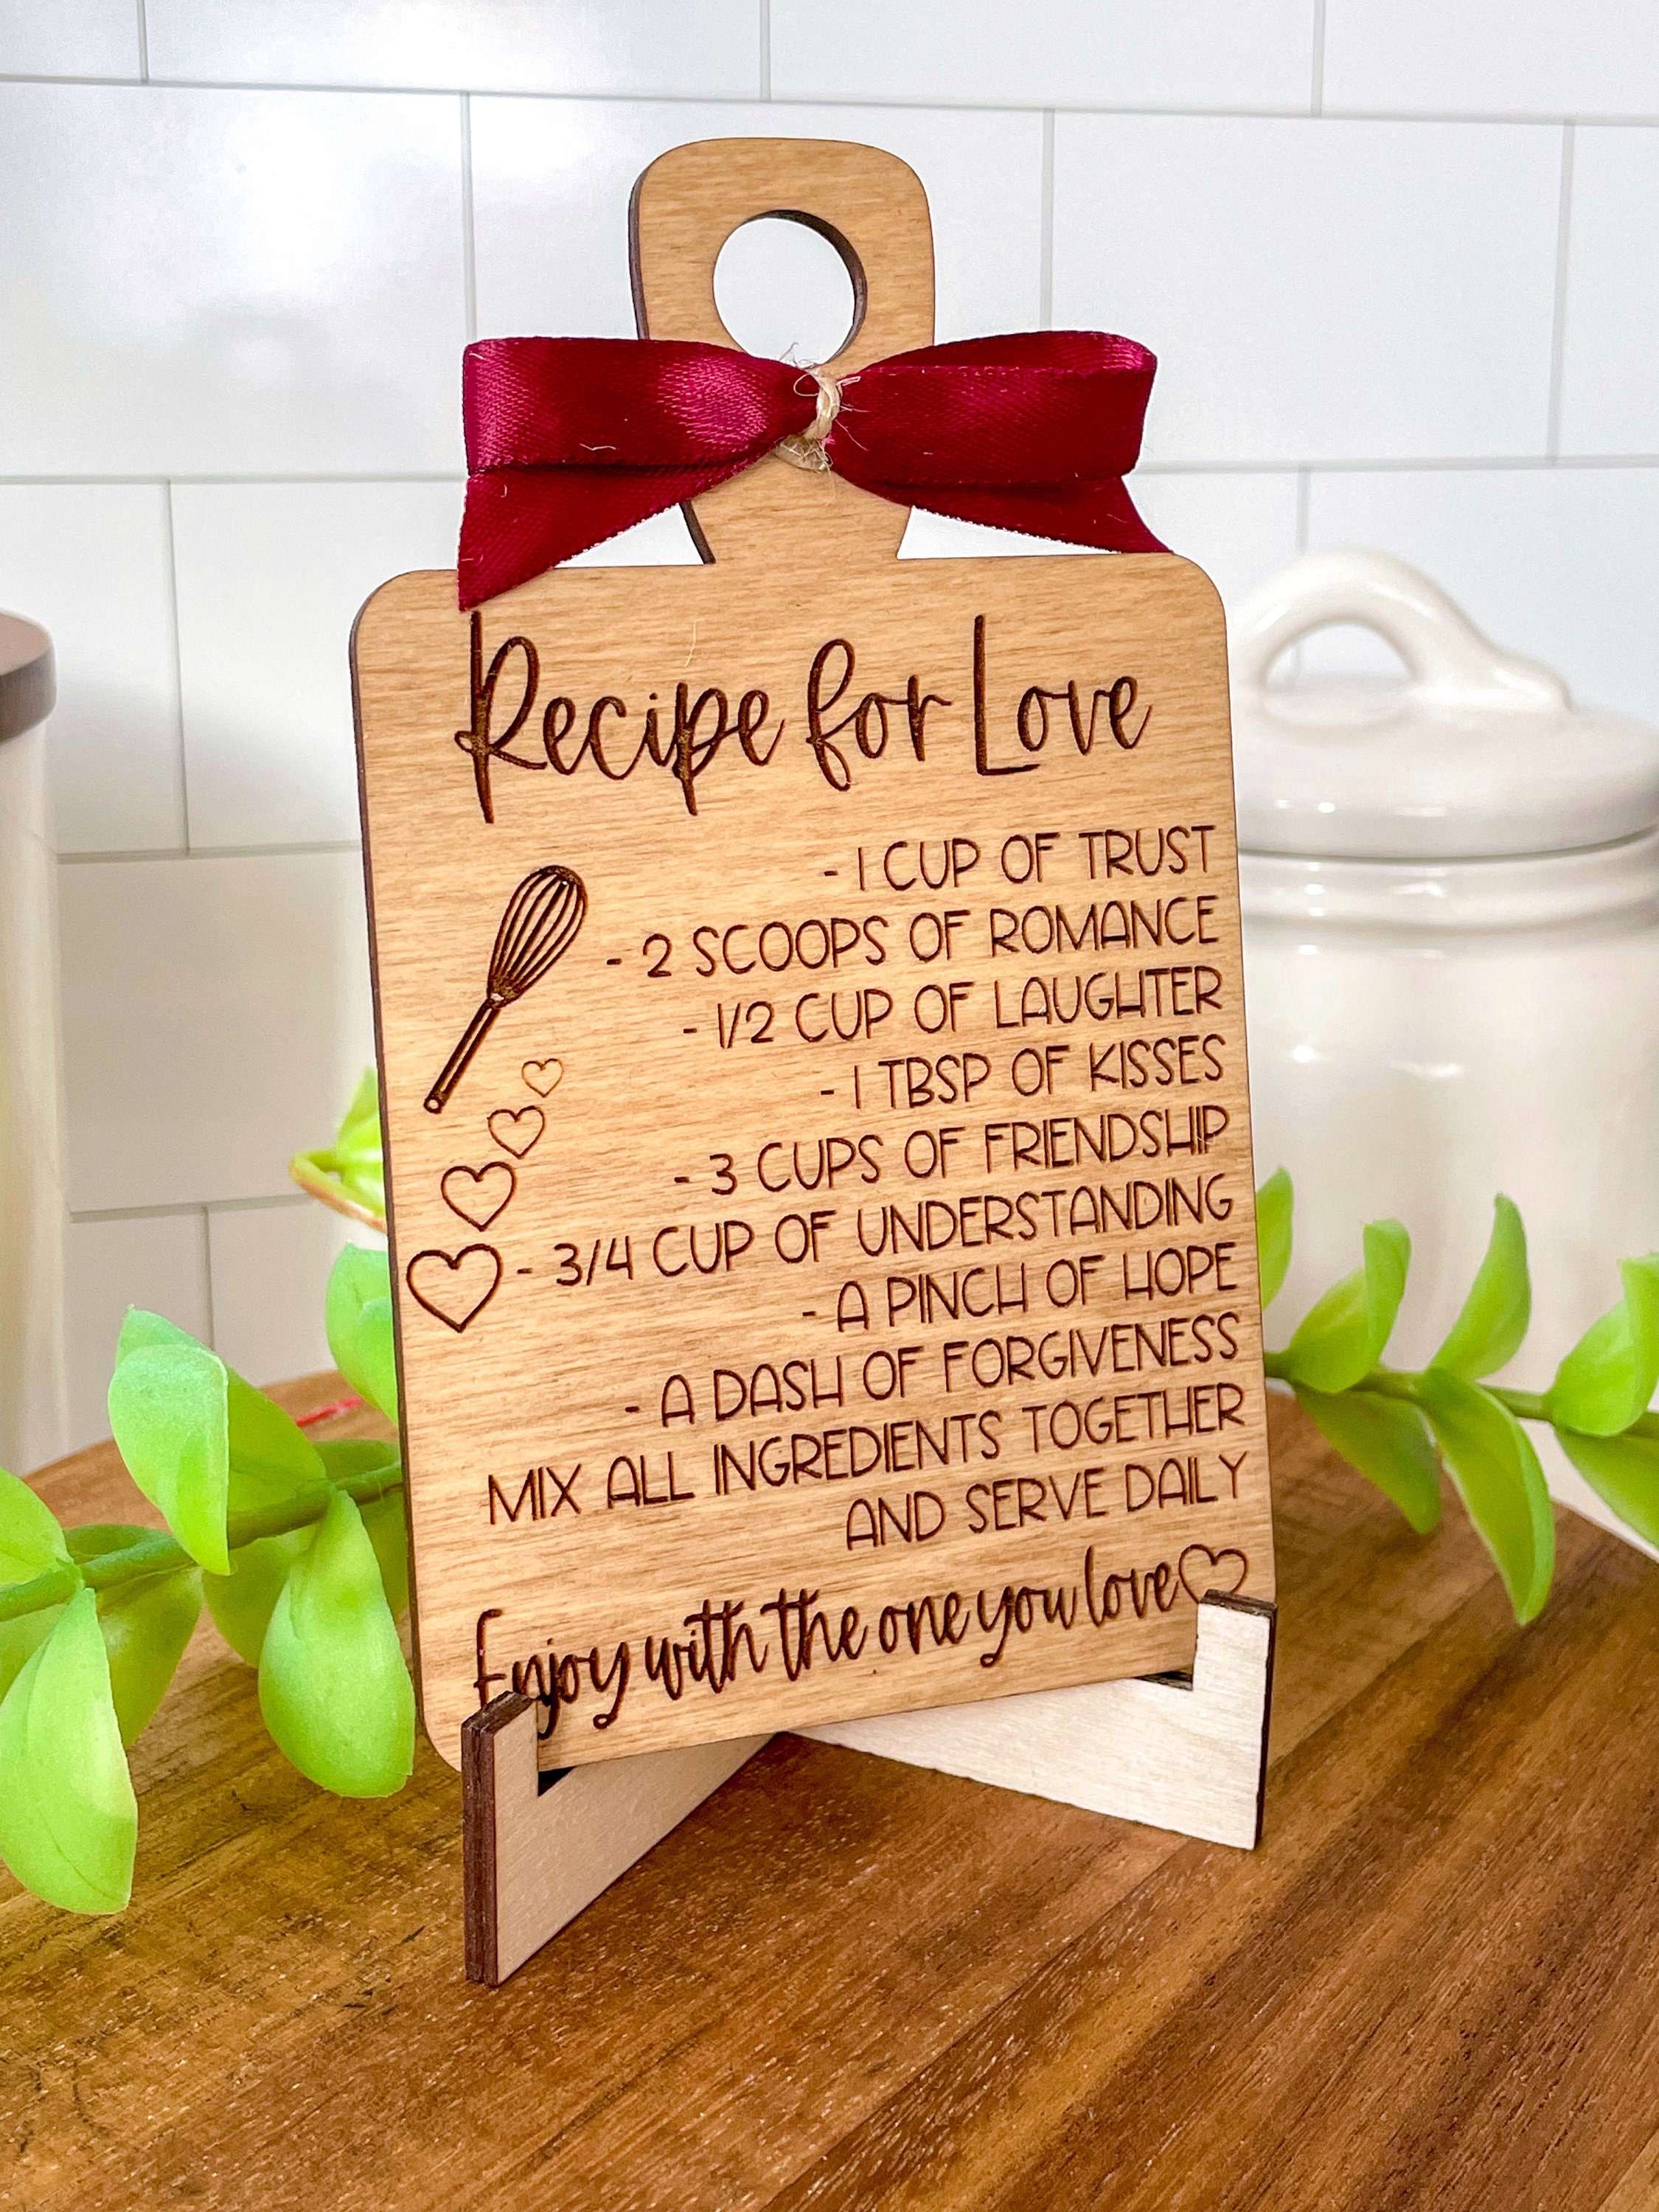 Recipe for Love
- 1 CUP OF TRUST
- 2 SCOOPS OF ROMANCE
- 1/2 CUP OF LAUGHTER
- 1 TBSP OF KISSES
- 3 CUPS OF FRIENDSHIP
- 3/4 CUP OF UNDERSTANDING
- A PINCH OF HOPE
- A DASH OF FORGIVENESS
MIX ALL INGREDIENTS TOGETHER
AND SERVE DAILY
Enjoy with the one you love